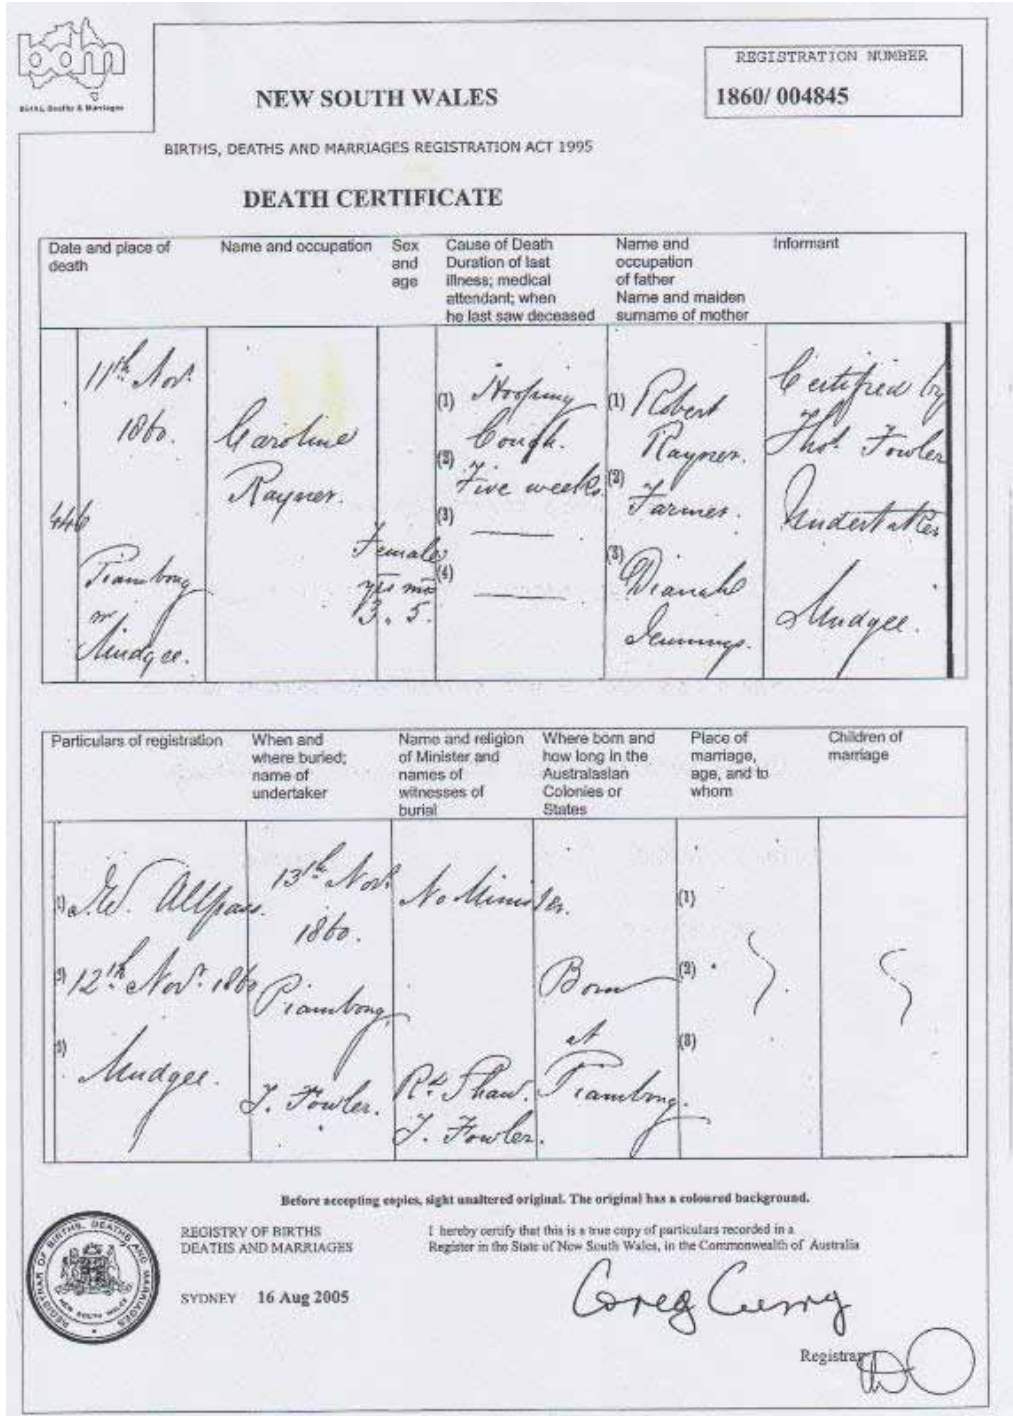 bdm
Births, Deaths & Marriages
REGISTRATION NUMBER
1860/ 004845
NEW SOUTH WALES
BIRTHS, DEATHS AND MARRIAGES REGISTRATION ACT 1995
DEATH CERTIFICATE
Date and place of
death
Name and occupation
Sex
and
age
Cause of Death
Duration of last
illness; medical
attendant; when
he last saw deceased
Name and
occupation
of father
Name and maiden
surname of mother
Informant
446
11th Novr.
1860.
Piambong
nr
Mudgee.
Caroline
Rayner.
Female
yrs mo
3. 5.
(1) Hooping
Cough.
(2) Five weeks
(3)
(4)
(1) Robert
Rayner.
(2) Farmer.
(3) Dianah
Jennings.
Certified by
Thos. Fowler
Undertaker
Mudgee.
Particulars of registration
When and
where buried;
name of
undertaker
Name and religion
of Minister and
names of
witnesses of
burial
Where born and
how long in the
Australasian
Colonies or
States
Place of
marriage,
age, and to
whom
Children of
marriage
1) Allpass.
2) 12th Novr. 1860
3) Mudgee.
13th Novr.
1860.
Piambong
T. Fowler.
No Minister.
Rd. Shaw.
T. Fowler.
Born
at
Piambong.
(1)
(2)
(3)
Before accepting copies, sight unaltered original. The original has a coloured background.
REGISTRAR OF BIRTHS, DEATHS AND MARRIAGES
NEW SOUTH WALES
REGISTRY OF BIRTHS
DEATHS AND MARRIAGES
SYDNEY 16 Aug 2005
I hereby certify that this is a true copy of particulars recorded in a
Register in the State of New South Wales, in the Commonwealth of Australia
Greg Curry
Registrar